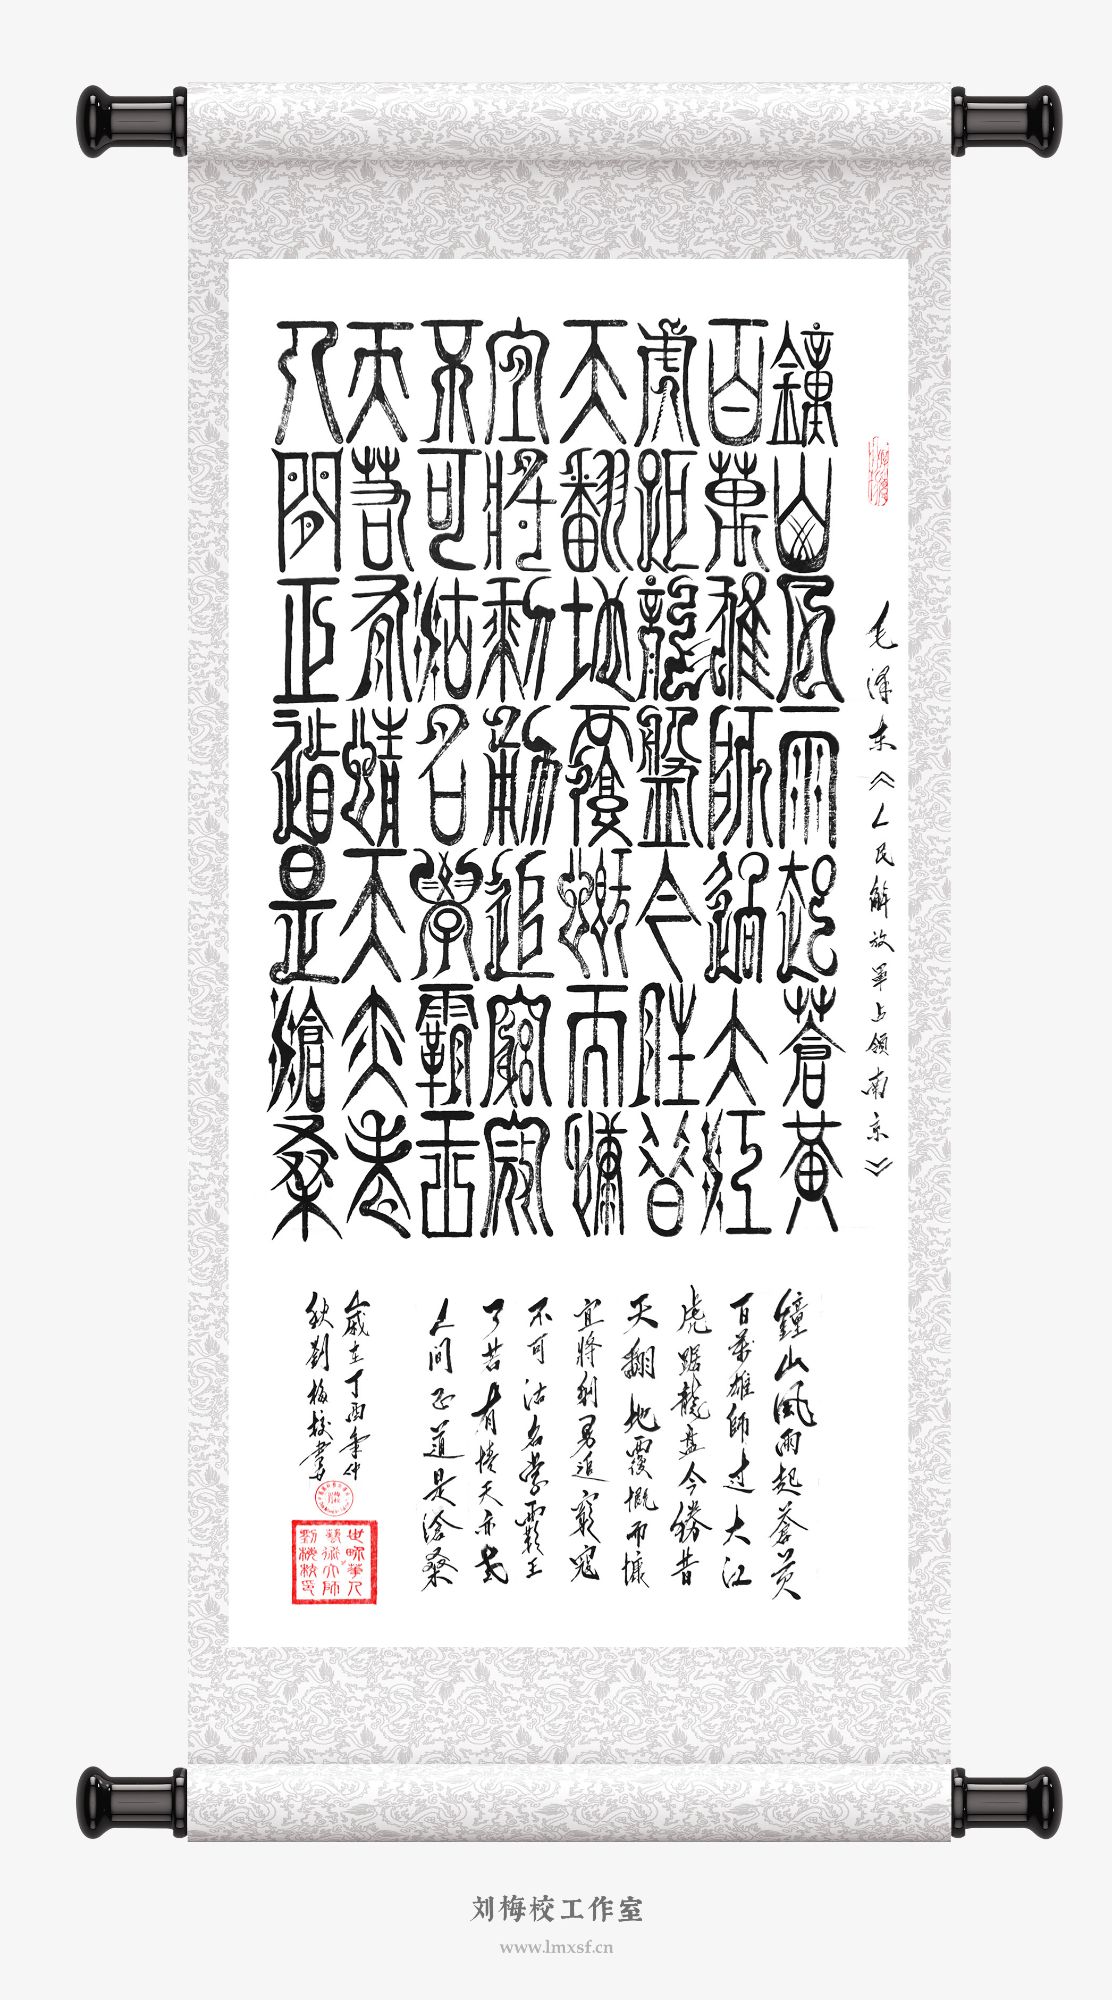 毛澤东《人民解放軍占領南京》
鐘山風雨起蒼黃
百萬雄師過大江
虎距龍盤今胜昔
天翻地覆慨而慷
宜將剩勇追窮寇
不可沽名學霸王
天若有情天亦老
人間正道是滄桑
鐘山風雨起蒼黃
百萬雄師过大江
虎踞龍盘今勝昔
天翻地覆慨而慷
宜將剩勇追窮寇
不可沽名學霸王
天若有情天亦老
人間正道是滄桑
歲在丁酉年仲
秋劉梅校書
世界華人
藝術大師
劉梅校印
刘梅校工作室
www.lmxsf.cn